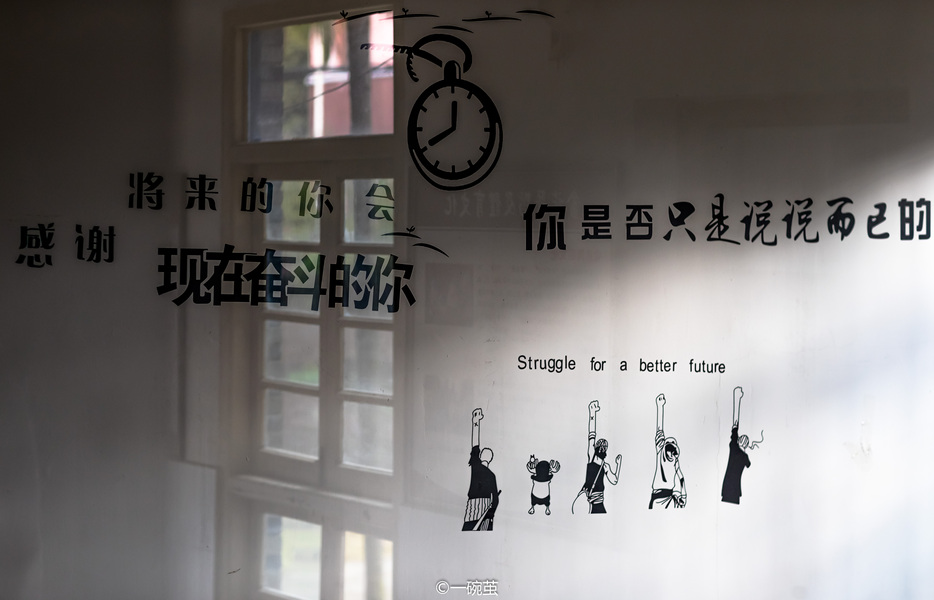 将来的你会
感谢
现在奋斗的你
你是否只是说说而已的
Struggle for a better future
©一碗茧